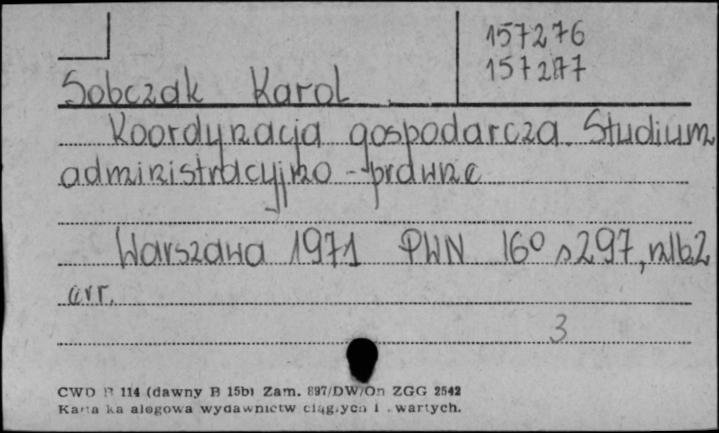 157276
157277
Sobczak Karol
Koordynacja gospodarcza. Studium
administracyjno-prawne
Warszawa 1971 PWN 16° s 297, nlb2
err.
3
CWD B 114 (dawny B 15b) Zam. 897/DW/On ZGG 2542
Karta ka alogowa wydawnictw ciągłych i zwartych.